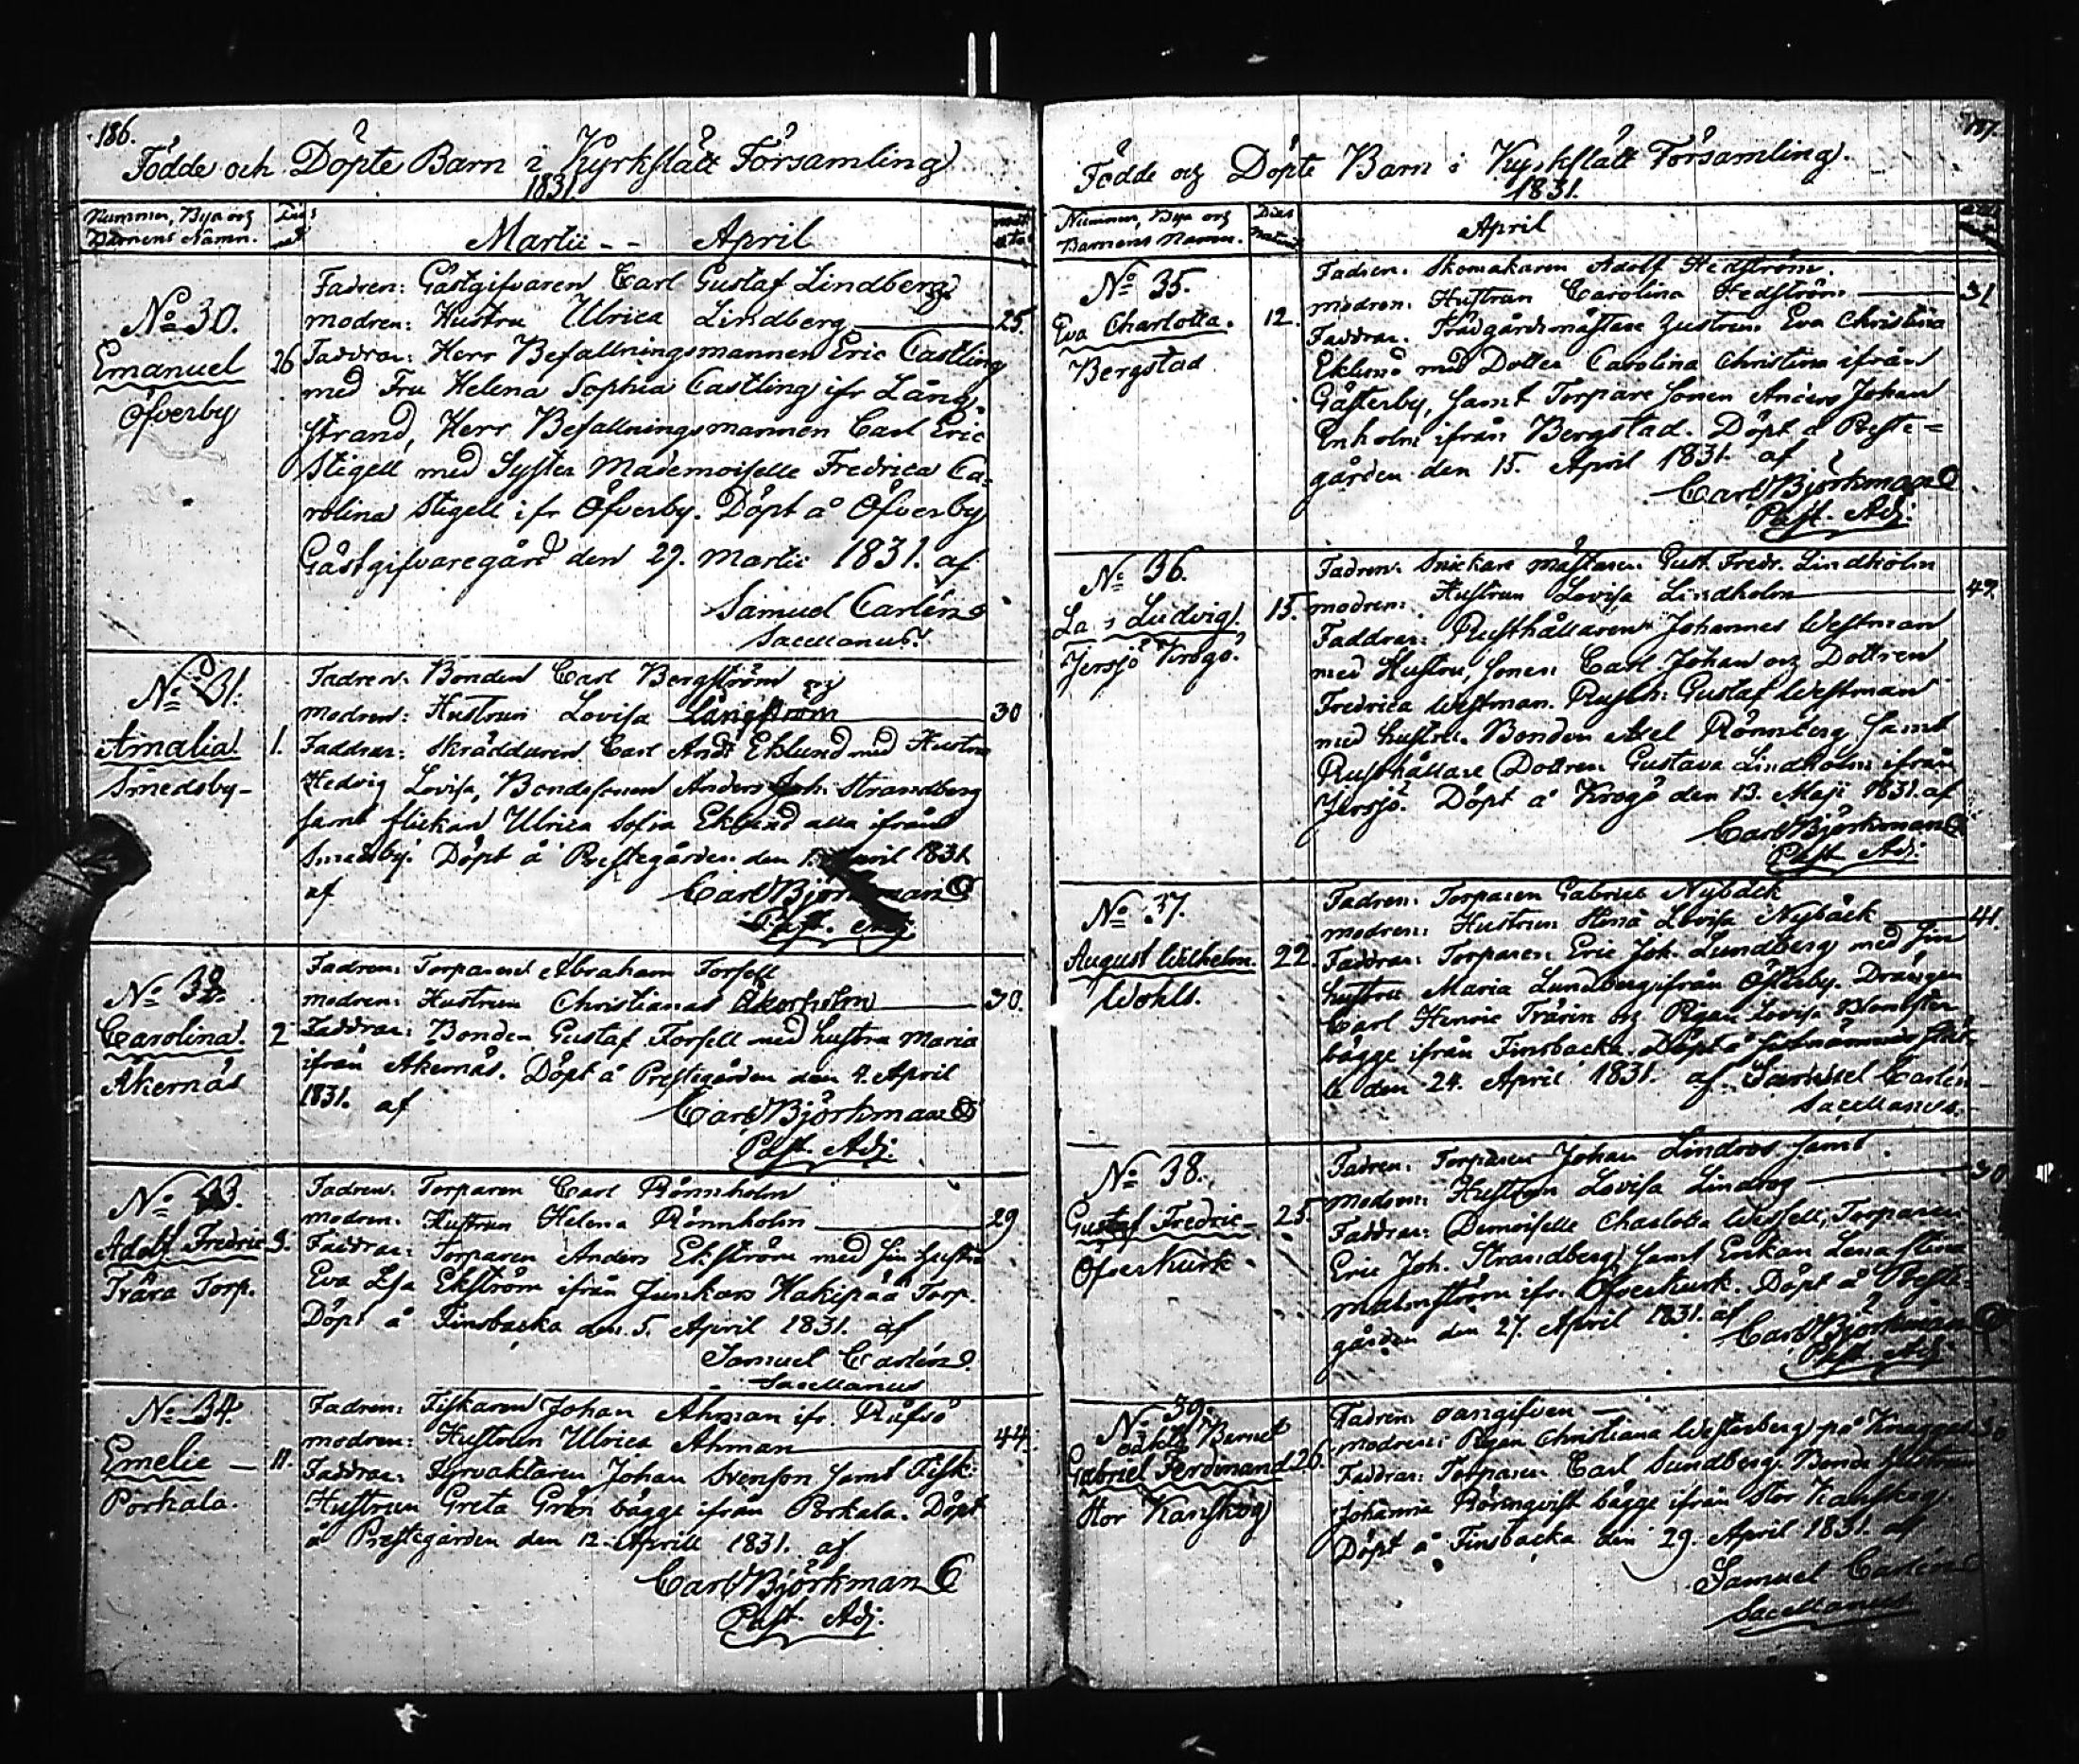 186.
Födde och Döpte Barn i Kyrkslätt Församling
1831.
Nummer, Bya och
Barnens Namn.
Martii - - April
No 30.
Emanuel
Öfverby
26
Fadren: Gästgifvaren Carl Gustaf Lindberg
modren: Hustru Ulrica Lindberg 25.
Faddrar: Herr Befallningsmannen Eric Castling
med Fru Helena Sophia Castling ifr Lång
strand, Herr Befallningsmannen Carl Eric
Stigell med Syster Mademoiselle Fredrica Ca=
rolina Stigell ifr Öfverby. Döpt å Öfverby
Gästgifvaregård den 29. Martii 1831. af
Samuel Carlén
Sacellanus.
No 31.
Amalia
Smedsby -
1.
Fadren: Bonden Carl Bergström och
modren: Hustrun Lovisa Långström 30
Faddrar: Skräddaren Carl Andr Eklund med Hustru
Hedvig Lovisa, Bondesonen Anders Joh. Strandberg
samt flickan Ulrica Sofia Eklund alla ifrån
Smedsby. Döpt å Prestegården den April 1831
af Carl Björkman
Past. Adj.
No 32.
Carolina.
Åkernäs
2
Fadren: Torparen Abraham Forsell
modren: Hustrun Christiana Åkerholm 30.
Faddrar: Bonden Gustaf Forsell med hustru Maria
ifrån Åkernäs. Döpt å Prestegården den 4. April
1831. af Carl Björkman
Past. Adj.
No 33.
Adolf Fredric
Trära Torp.
3.
Fadren: Torparen Carl Rönnholm
modren: Hustrun Helena Rönnholm 29
Faddrar: Torparen Anders Ekström med sin hustru
Eva Lisa Ekström ifrån Junkars Hakipää Torp.
Döpt å Finsbacka den 5. April 1831. af
Samuel Carlén.
Sacellanus
No 34.
Emelie
Porkala.
11.
Fadren: Fiskaren Johan Åhman ifr. Räfsö
modren: Hustrun Ulrica Åhman 44.
Faddrar: Fyrvaktaren Johan Svenson samt Fisk.
Hustrun Greta Grön bägge ifrån Porkala. Döpt
å Prestegården den 12. Aprill 1831. af
Carl Björkman
Past. Adj.
187.
Födde och Döpte Barn i Kyrkslätt Församling.
1831.
Nummer, Bya och
Barnens Namn.
Dies
April
No 35.
Eva Charlotta.
Bergstad
12.
Fadren: Skomakaren Adolf Hedström.
modren: Hustrun Carolina Hedström 31
Faddrar: Trädgårdsmästare hustrun Eva Christina
Eklund med Dotter Carolina Christina ifrån
Gästerby, samt Torpare Sonen Anders Johan
Enholm ifrån Bergstad. Döpt å Preste=
gården den 15. April 1831 af
Carl Björkman
Past. Adj.
No 36.
Ludvig.
Jersjö Krogö.
15.
Fadren: Snickare mästaren Gust. Fredr. Lindholm
modren: Hustrun Lovisa Lindholm 42.
Faddrar: Rusthållaren Johannes Westman
med Hustru, Sonen Carl Johan och Dottren
Fredrica Westman. Rusth: Gustaf Westman
med hustru. Bonden Axel Rönnberg samt
Rusthållare Dottren Gustava Lindholm ifrån
Jersjö. Döpt å Krogö den 13. Maji 1831. af
Carl Björkman
Past. Adj.
No 37.
August Wilhelm.
Wohls.
22.
Fadren: Torparen Gabriel Nybäck
modren: Hustrun Lovisa Nybäck 41.
Faddrar: Torparen Eric Joh. Lundberg med sin
hustru Maria Lundberg ifrån Österby. Drängen
Carl Henric Trärin och Pigan Lovisa
bägge ifrån Finsbacka. Döpt å
le den 24. April 1831. af Samuel Carlén
Sacellanus.
No 38.
Gustaf Fredric
Öfverkurk
25.
Fadren: Torparen Johan Lindroos samt
modren: Hustrun Lovisa Lindroos 30
Faddrar: Demoiselle Charlotta Wessell, Torparen
Eric Joh. Strandberg, samt Enkan Lena Stina
Malmström ifr. Öfverkurk. Döpt å Preste=
gården den 27. April 1831. af Carl Björkman
Past. Adj.
No 39.
oäkta Barnet
Gabriel Ferdinand
Stor Kanskog
26.
Fadren oangifven
modren: Pigan Christiana Westerberg på
Faddrar: Torparen Carl Sundberg. Bonde hustrun
Johanna Rönnqvist bägge ifrån Stor Kanskog.
Döpt å Finsbacka den 29. April 1831. af
Samuel Carlén
Sacellanus